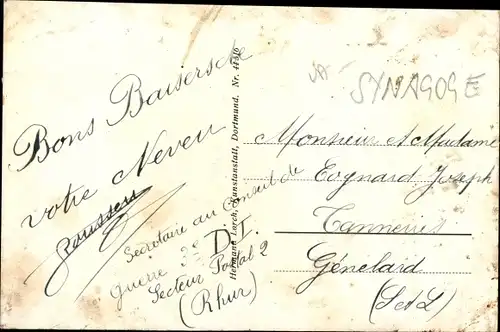 Bons Baisers de
votre Neveu
Secretaire au Conseil de
guerre 3e D.I.
Secteur Postal 2
(Rhur)
Hermann Lorch, Kunstanstalt, Dortmund. Nr.
SYNAGOGE
Monsieur et Madame
Joseph
Tanneries
Génelard
(S et L)